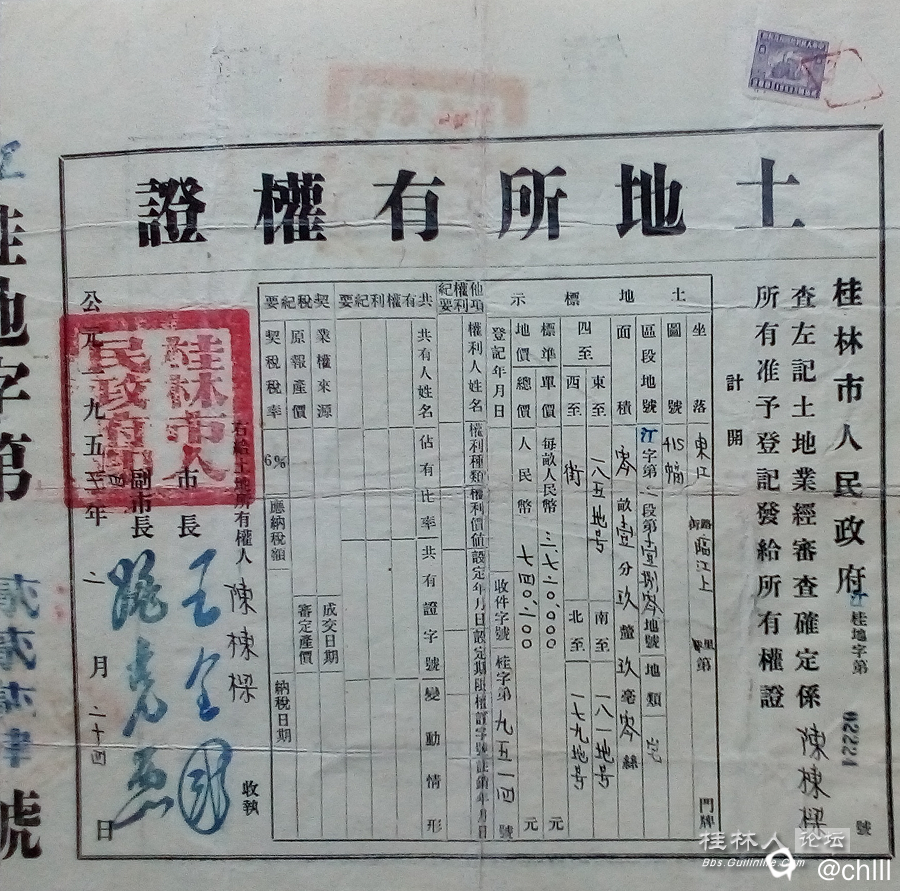 土地所有權證
桂林市人民政府
江桂地字第02224號
查左記土地業經審查確定係陳棟樑
所有准予登記發給所有權證
計開
土地標示
坐落 東江 街路 臨江上 里 第 門牌
圖號 415幅
區段地號 江字第二段第壹捌零地號 地類 宅
面積 零畝壹分玖釐玖毫零絲
四至 東至 一八五地号 南至 一八一地号
西至 街 北至 一七九地号
標準單價 每畝人民幣 三.七二〇.〇〇〇 元
地價總價 人民幣 七四〇.二〇〇 元
登記年月日 收件字號 桂字第九五一四號
他項權利紀要
權利人姓名 權利種類 權利價值 設定年月日 設定期限 權證字號 註銷年月日
共有權利紀要
共有人姓名 佔有比率 共有證字號 變動情形
契稅紀要
業權來源 成交日期
原報產價 審定產價
契稅稅率 6% 應納稅額 納稅日期
右給土地所有權人 陳棟樑 收執
市長 王全國
副市長
桂林市人民政府印
公元一九五三年二月二十四日
江
桂地字第貳貳貳肆號
桂林人论坛
Bbs.Guilinlife.com
@chlll